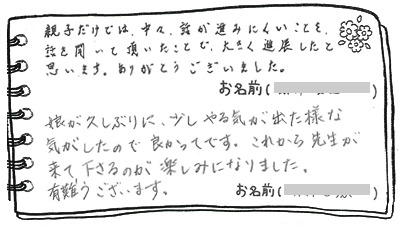 親子だけでは、中々、話が進みにくいことを、
話を聞いて頂いたことで、大きく進展したと
思います。ありがとうございました。
お名前(
娘が久しぶりに、少しやる気が出た様な
気がしたので良かってです。これから先生が
来て下さるのが楽しみになりました。
有難うございます。 お名前(